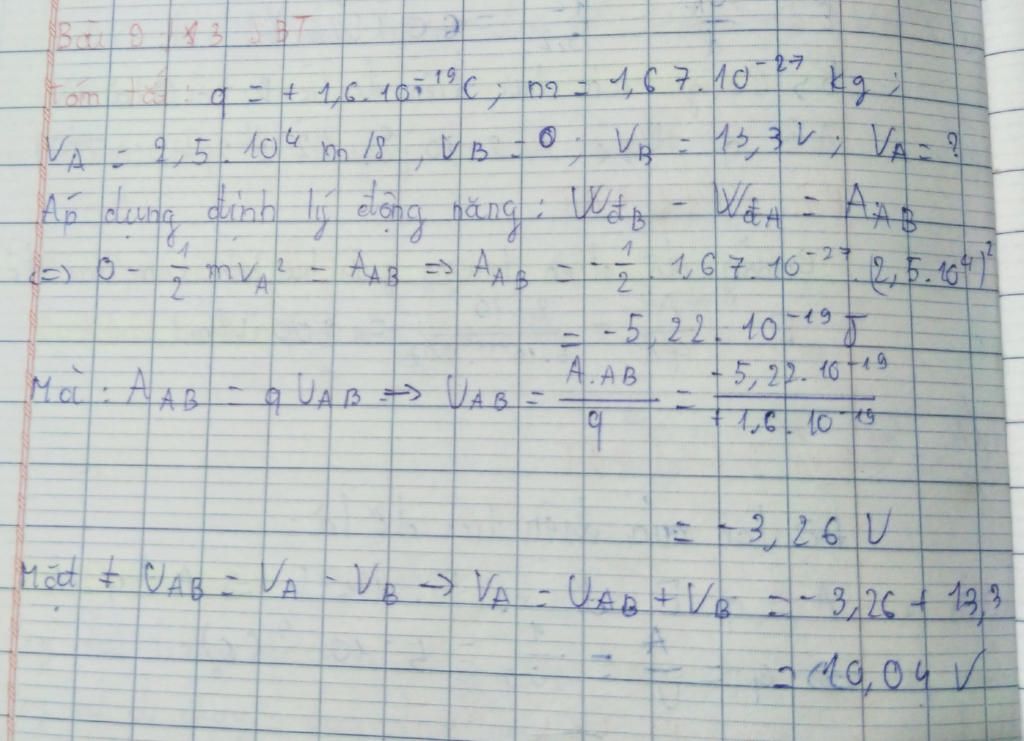 Tóm tắt: q = + 1,6.10⁻¹⁹ C; m = 1,67.10⁻²⁷ kg;
vA = 2,5.10⁴ m/s, vB = 0; VB = 13,3 V; VA = ?
Áp dụng định lý động năng: WđB - WđA = AAB
<=> 0 - 1/2 mvA² = AAB => AAB = - 1/2 . 1,67.10⁻²⁷.(2,5.10⁴)²
= -5,22.10⁻¹⁹ J
Mà: AAB = q UAB => UAB = A.AB / q = -5,22.10⁻¹⁹ / +1,6.10⁻¹⁹
= -3,26 V
UAB = VA - VB -> VA = UAB + VB = -3,26 + 13,3
= 10,04 V